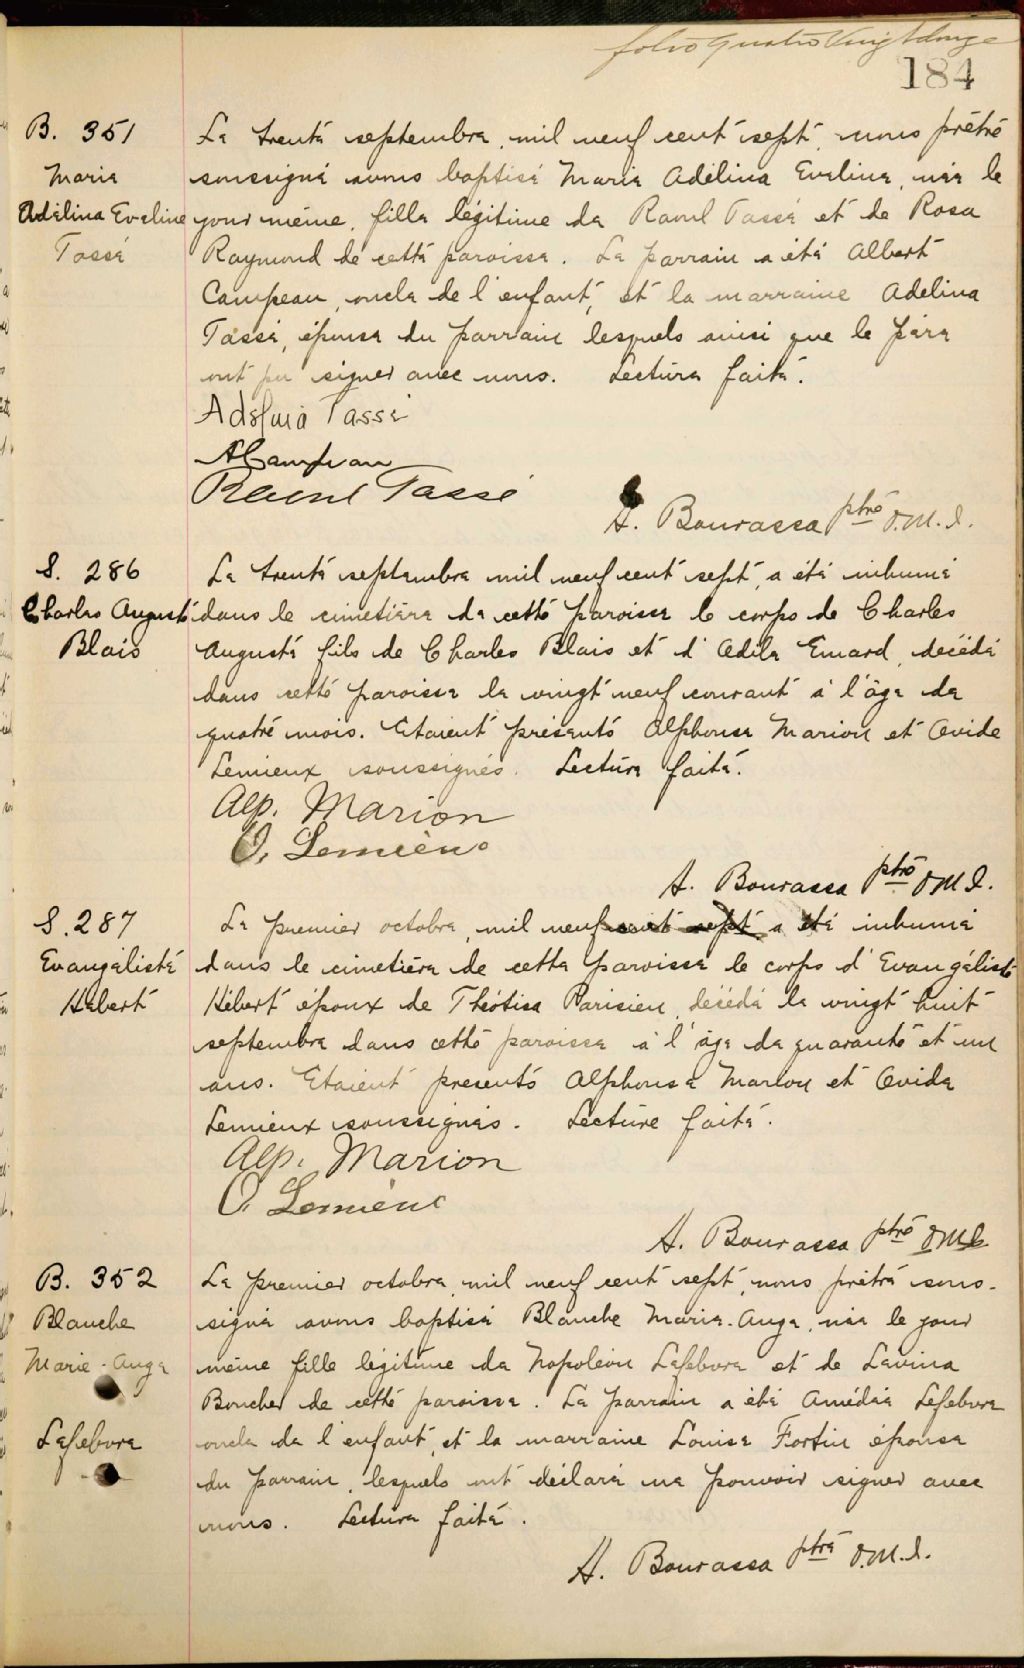 folio quatre vingt douze
184
B. 351
Maria
Adélina Eveline
Tassé
Le trente septembre, mil neuf cent sept, nous prêtre
soussigné avons baptisé Maria Adélina Eveline, née le
jour même, fille légitime de Raoul Tassé et de Rosa
Raymond de cette paroisse. Le parrain a été Albert
Campeau, oncle de l'enfant, et la marraine Adelina
Tassé, épouse du parrain lesquels ainsi que le père
ont pu signer avec nous. Lecture faite.
Adelina Tassé
A Campeau
Raoul Tassé
A. Bourassa ptre O.M.I.
S. 286
Charles Auguste
Blais
Le trente septembre mil neuf cent sept, a été inhumé
dans le cimetière de cette paroisse le corps de Charles
Auguste fils de Charles Blais et d'Adila Emard, décédé
dans cette paroisse le vingt neuf courant à l'âge de
quatre mois. Etaient présents Alphonse Marion et Ovide
Lemieux soussignés. Lecture faite.
Alp. Marion
O. Lemieux
A. Bourassa ptre O.M.I.
S. 287
Evangéliste
Hébert
Le premier octobre, mil neuf cent sept a été inhumé
dans le cimetière de cette paroisse le corps d'Evangéliste
Hébert époux de Théotise Parisien, décédé le vingt huit
septembre dans cette paroisse à l'âge de quarante et un
ans. Etaient présents Alphonse Marion et Ovide
Lemieux soussignés. Lecture faite.
Alp. Marion
O. Lemieux
A. Bourassa ptre O.M.I.
B. 352
Blanche
Marie-Ange
Lefebvre
Le premier octobre, mil neuf cent sept, nous prêtre sous-
signé avons baptisé Blanche Marie-Ange, née le jour
même fille légitime de Napoléon Lefebvre et de Lavina
Boucher de cette paroisse. Le parrain a été Amédée Lefebvre
oncle de l'enfant, et la marraine Louise Fortin épouse
du parrain, lesquels ont déclaré ne pouvoir signer avec
nous. Lecture faite.
A. Bourassa ptre O.M.I.